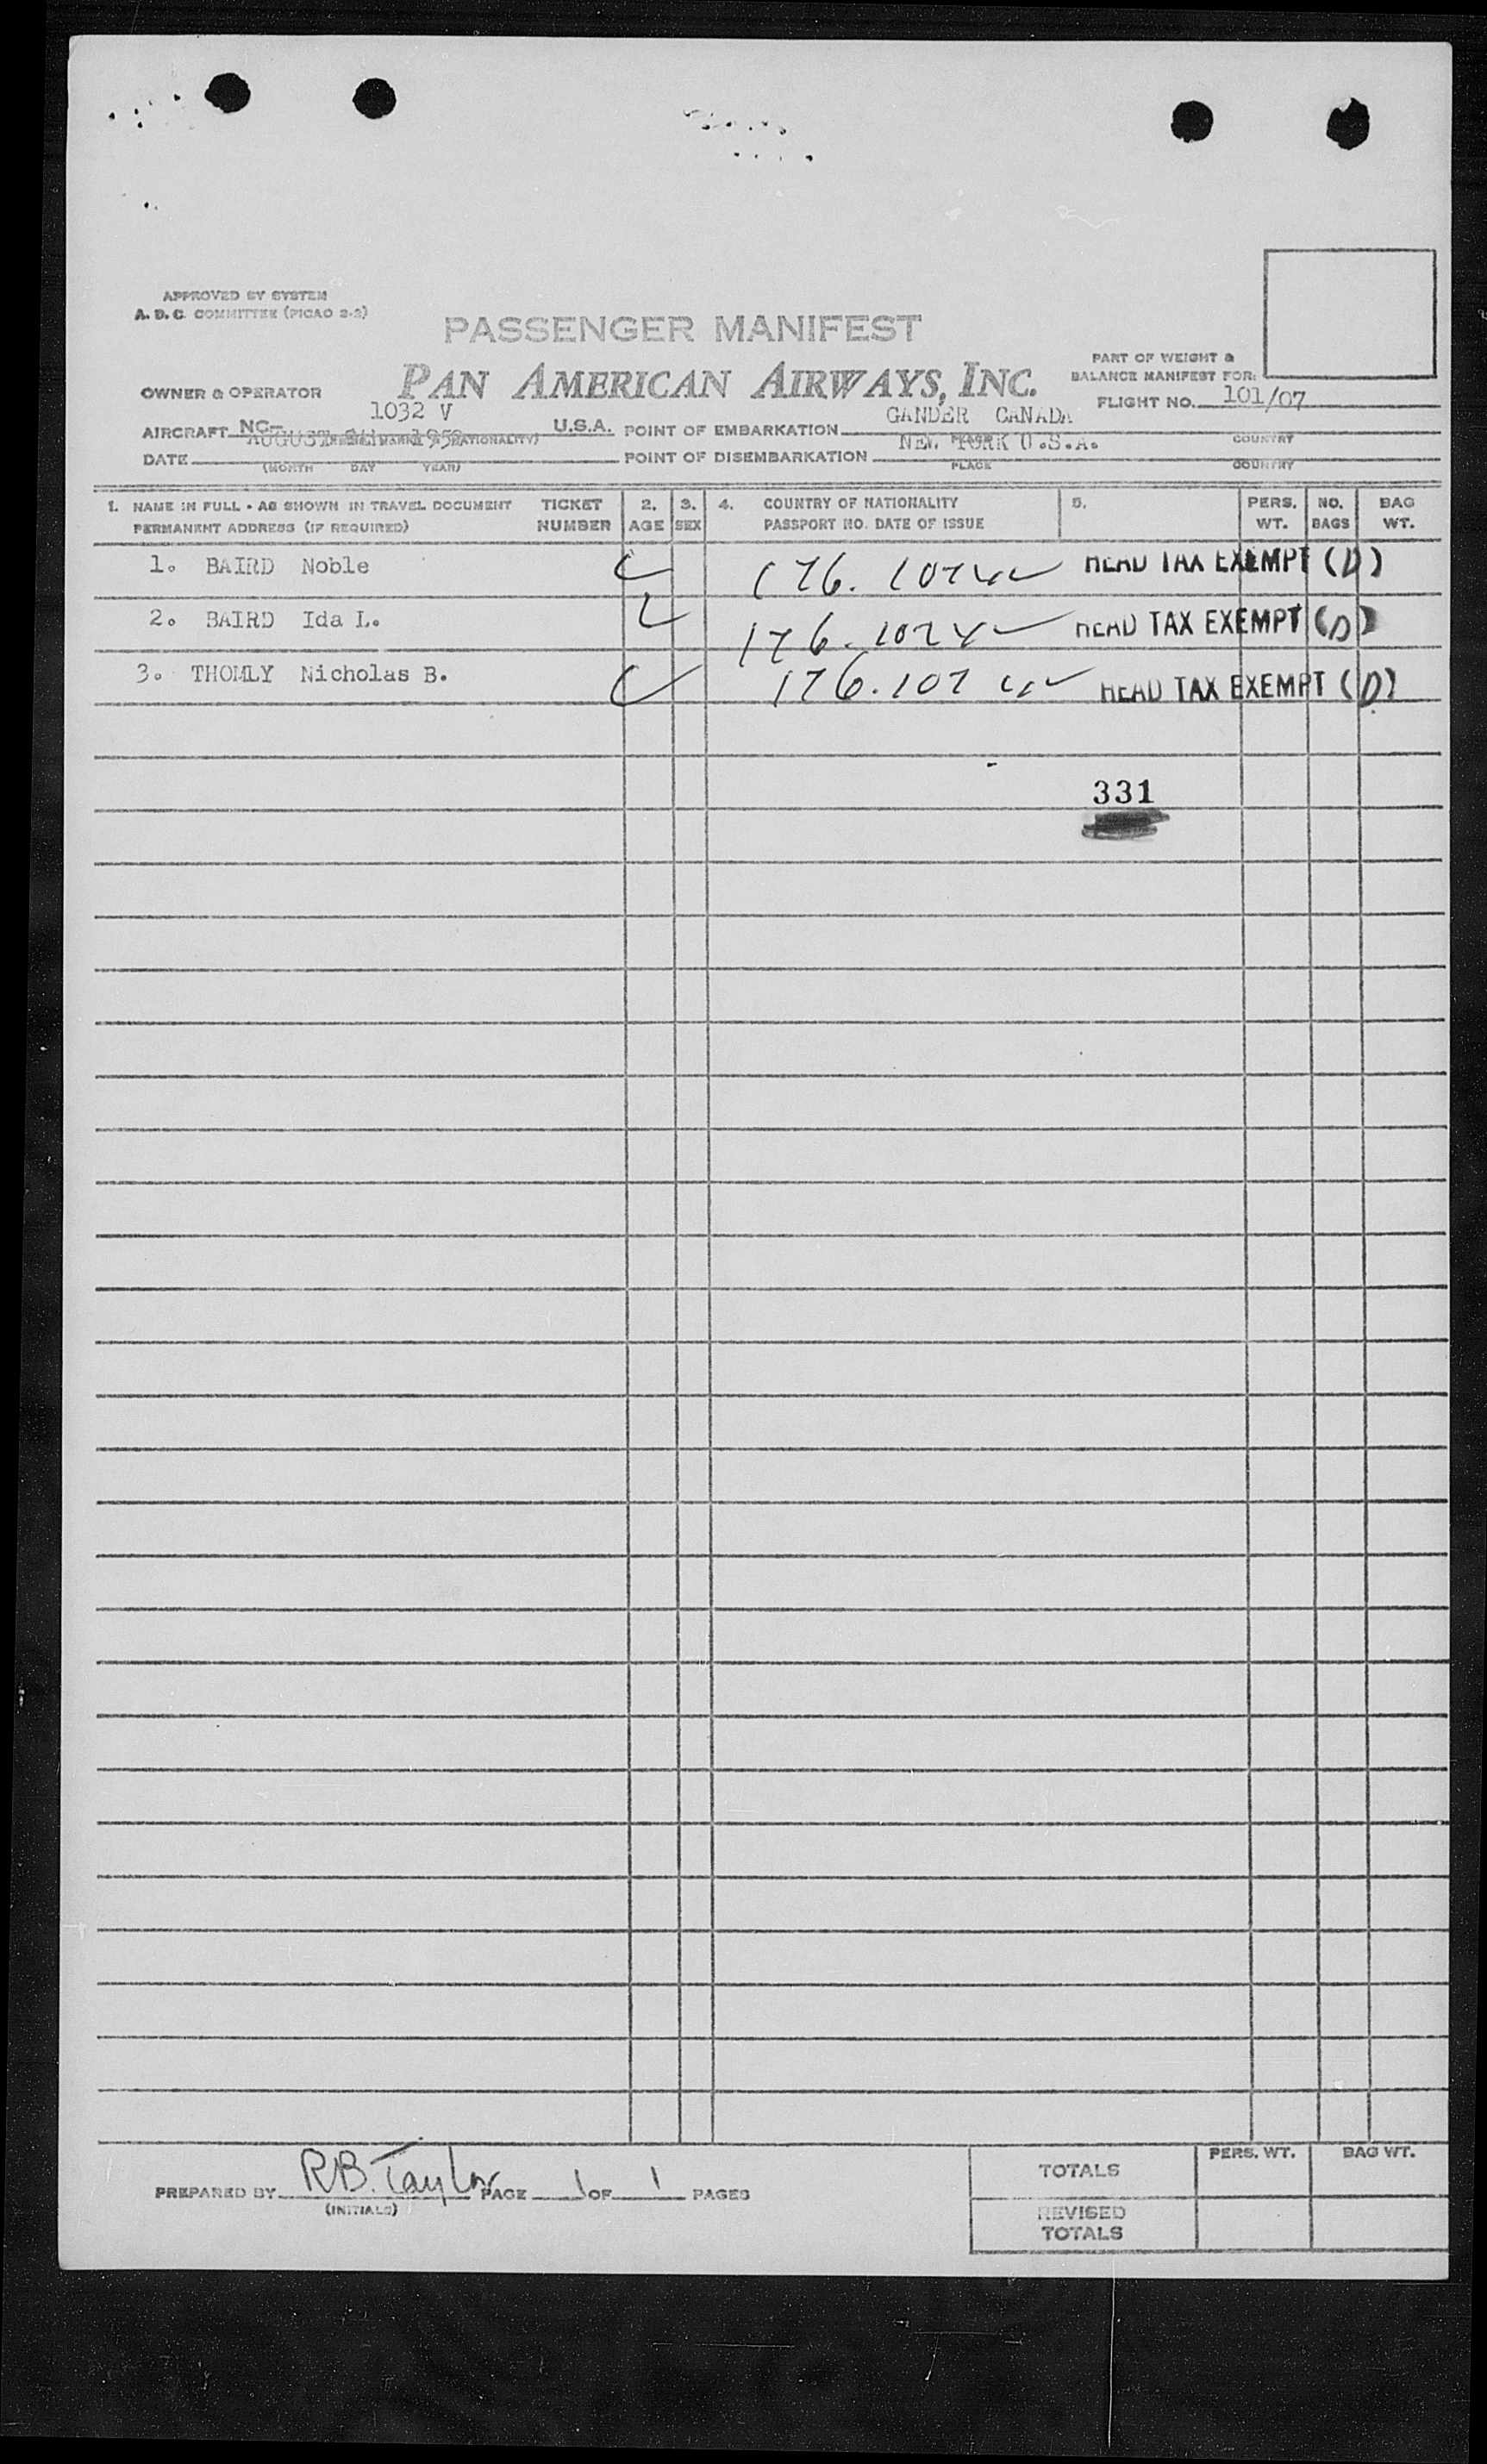 APPROVED BY SYSTEM
A. D. C. COMMITTEE (PICAO 2-2)
PASSENGER MANIFEST
PART OF WEIGHT &
BALANCE MANIFEST FOR:
OWNER & OPERATOR PAN AMERICAN AIRWAYS, INC. FLIGHT NO. 101/07
1032 V GANDER CANADA
AIRCRAFT NC- U.S.A. POINT OF EMBARKATION
AUGUST 1950 NATIONALITY) NEW YORK U.S.A. PLACE COUNTRY
DATE POINT OF DISEMBARKATION
(MONTH DAY YEAR) PLACE COUNTRY
1. NAME IN FULL - AS SHOWN IN TRAVEL DOCUMENT TICKET 2. 3. 4. COUNTRY OF NATIONALITY 5. PERS. NO. BAG
PERMANENT ADDRESS (IF REQUIRED) NUMBER AGE SEX PASSPORT NO. DATE OF ISSUE WT. BAGS WT.
1. BAIRD Noble 176.107 HEAD TAX EXEMPT (D)
2. BAIRD Ida L. 176.107 HEAD TAX EXEMPT (D)
3. THOMLY Nicholas B. 176.107 HEAD TAX EXEMPT (D)
331
PREPARED BY R.B. Taylor PAGE 1 OF 1 PAGES
(INITIALS)
TOTALS PERS. WT. BAG WT.
REVISED
TOTALS